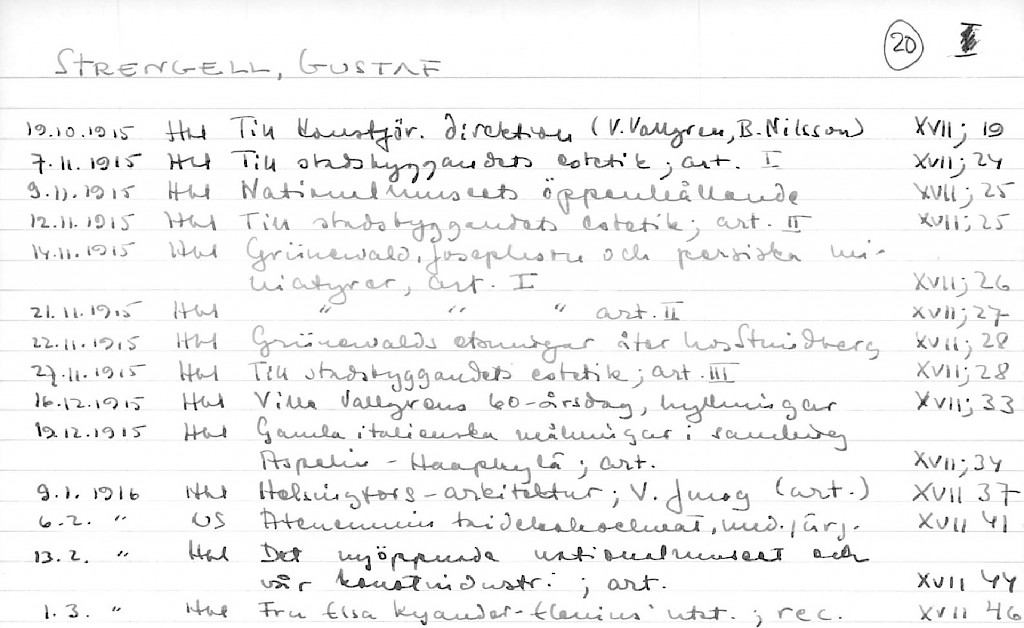 20 I
STRENGELL, GUSTAF
19.10.1915 Hbl Till Konstför. direktion (V. Vallgren, B. Nilsson) XVII; 19
7.11.1915 Hbl Till stadsbyggandets estetik; art. I XVII; 24
9.11.1915 Hbl Nationalmuseets öppenhållande XVII; 25
12.11.1915 Hbl Till stadsbyggandets estetik; art. II XVII; 25
14.11.1915 Hbl Grünewald, Josephson och persiska mi-
niatyrer, art. I XVII; 26
21.11.1915 Hbl " " " art. II XVII; 27
22.11.1915 Hbl Grünewalds etsningar åter hos Strindberg XVII; 28
27.11.1915 Hbl Till stadsbyggandets estetik; art. III XVII; 28
16.12.1915 Hbl Ville Vallgrens 60-årsdag, hyllningar XVII; 33
19.12.1915 Hbl Gamla italienska målningar i samling
Aspelin-Haapkylä; art. XVII; 34
9.1.1916 Hbl Helsingfors-arkitektur; V. Jung (art.) XVII 37
6.2. " US Ateneumin taidekokoelmat, uud. järj. XVII 41
13.2. " Hbl Det nyöppnade nationalmuseet och
vår konstindustri; art. XVII 44
1.3. " Hbl Fru Elsa Kyander-Elenius' utst.; rec. XVII 46